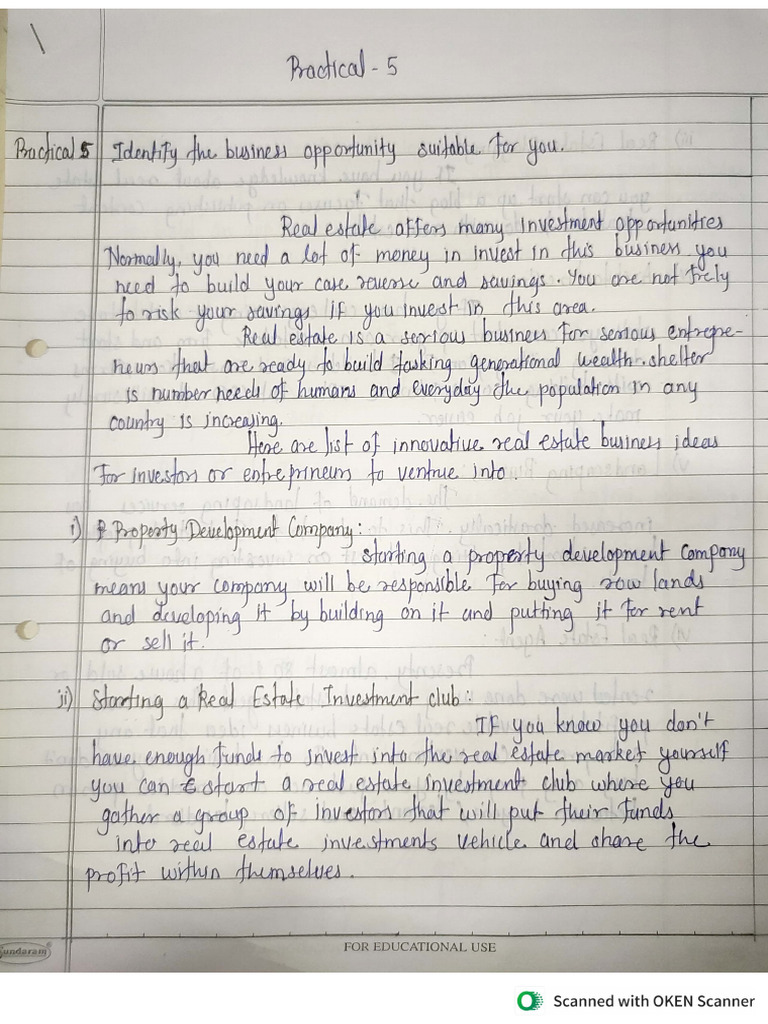 Practical - 5
Practical 5 Identify the business opportunity suitable for you.
Real estate offers many investment opportunities
Normally, you need a lot of money in invest in this business you
need to build your case reverse and savings. You are not frely
to risk your savings if you invest in this area.
Real estate is a serious business for serious entrepre-
neurs that are ready to build tasking generational wealth. shelter
is number needs of humans and everyday the population in any
country is increasing.
Here are list of innovative real estate business ideas
for investors or entreprineurs to ventrue into.
i) Property Development Company:
starting a property development company
means your company will be responsible for buying row lands
and developing it by building on it and putting it for rent
or sell it.
ii) Starting a Real Estate Investment club:
If you know you don't
have enough funds to invest into the real estate market yourself
you can start a real estate investment club where you
gather a group of investors that will put their funds
into real estate investments vehicle and share the
profit within themselves.
Sundaram
FOR EDUCATIONAL USE
Scanned with OKEN Scanner